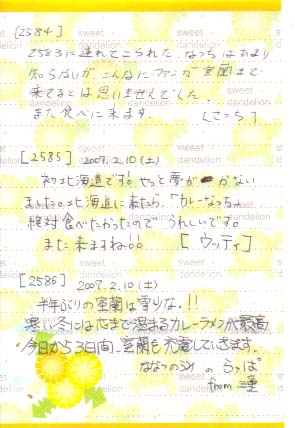 [2584]
2583に連れてこられた。なっちはあまり
知らないが、こんなにファンが室蘭まで
来てるとは思いませんでした。
また食べに来ます。
[2585] 2007.2.10(土)
初北海道です。やっと夢がかない
ました。北海道に来たら、「カレーなっち」
絶対食べたかったので、うれしいです。
また来ますね!! [ウッディ]
[2586] 2007.2.10(土)
半年ぶりの室蘭は雪少な。!!
寒い冬には芯まで温まるカレーラメンが最高
今日から3日間、室蘭も充電していきます。
ななつのうみ のらっぱ
from 三重
sweet
dandelion